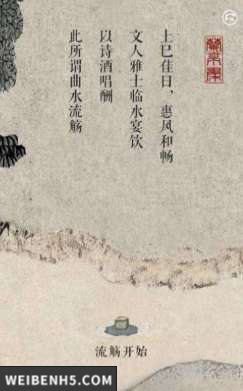 上巳佳日，惠风和畅
文人雅士临水宴饮
以诗酒唱酬
此所谓曲水流觞
流觞开始
WEIBENH5.COM